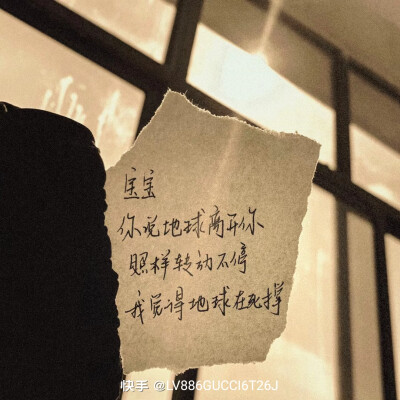 宝宝
你说地球离开你
照样转动不停
我觉得地球在死撑
快手 @LV886GUCCI6T26J